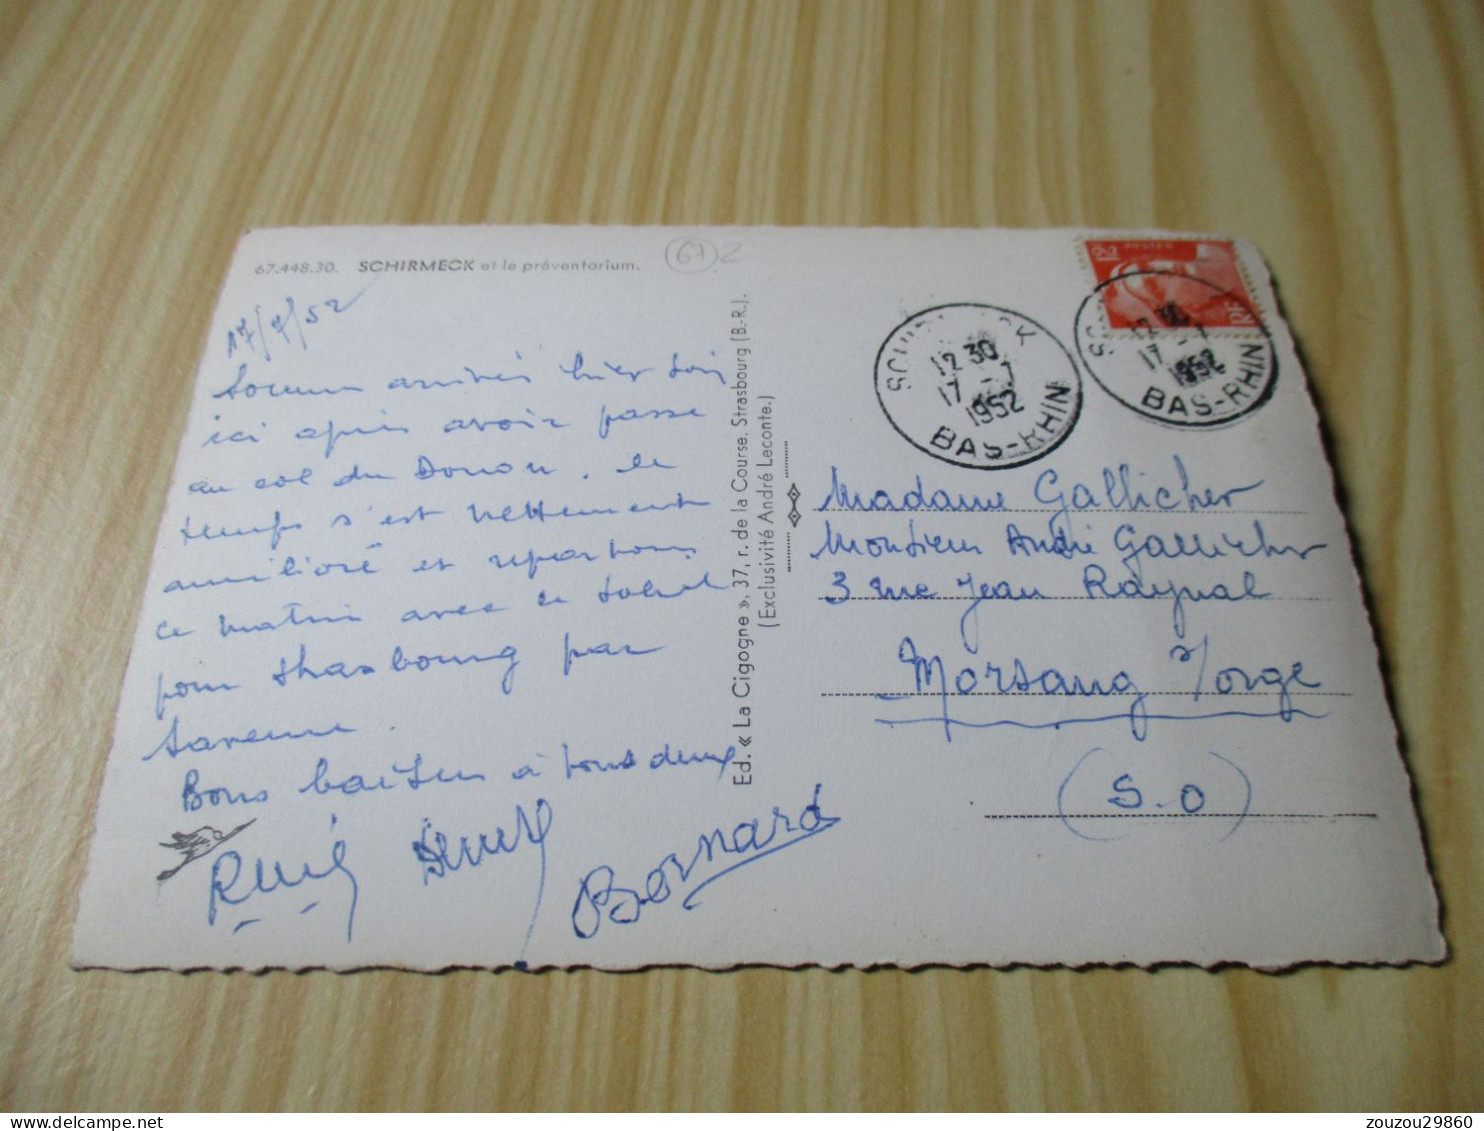 67.448.30. SCHIRMECK et le préventorium.
67 2
17/7/52
Sommes arrivés hier soir
ici après avoir passé
au col du Donon. le
temps s'est nettement
amélioré et repartons
ce matin avec le soleil
pour Strasbourg par
Saverne.
Bons baisers à tous deux
René
Bernard
Ed. « La Cigogne », 37, r. de la Course, Strasbourg (B.-R.).
(Exclusivité André Leconte.)
POSTES
12 30
17 - 7
1952
BAS-RHIN
12 30
17 - 7
1952
BAS-RHIN
Madame Gallicher
Monsieur André Gallicher
3 rue Jean Raynal
Morsang s/orge
(S.O)
zouzou29860